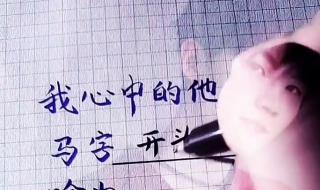 我心中的他
马字 开头